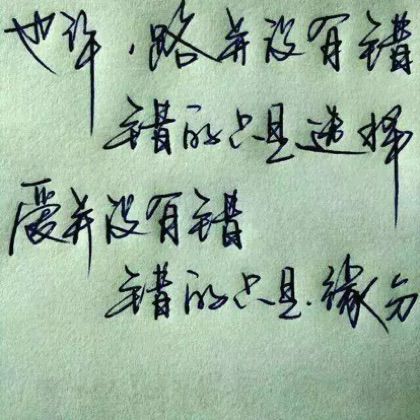 也许，路并没有错
错的只是选择
爱并没有错
错的只是.缘分